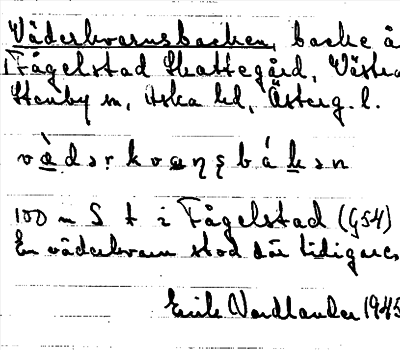 Väderkvarnsbacken, backe å
Fågelstad Skattegård, Västra
Stenby sn, Aska hd, Österg. l.
vä̀dərkvaɳʂbákən
100 m S t i Fågelstad (G54)
En väderkvarn stod där tidigare.
Erik Nordlander 1945